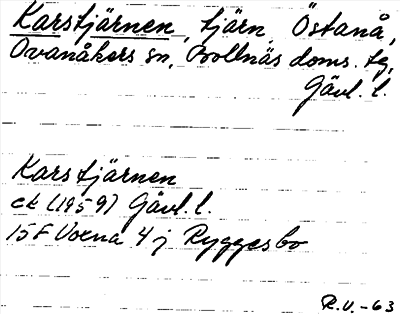 Karstjärnen, tjärn, Östanå,
Ovanåkers sn, Bollnäs doms. tg,
Gävl. l.
Karstjärnen
ek (1959) Gävl. l.
15F Voxna 4j Ryggesbo
R.V. -63